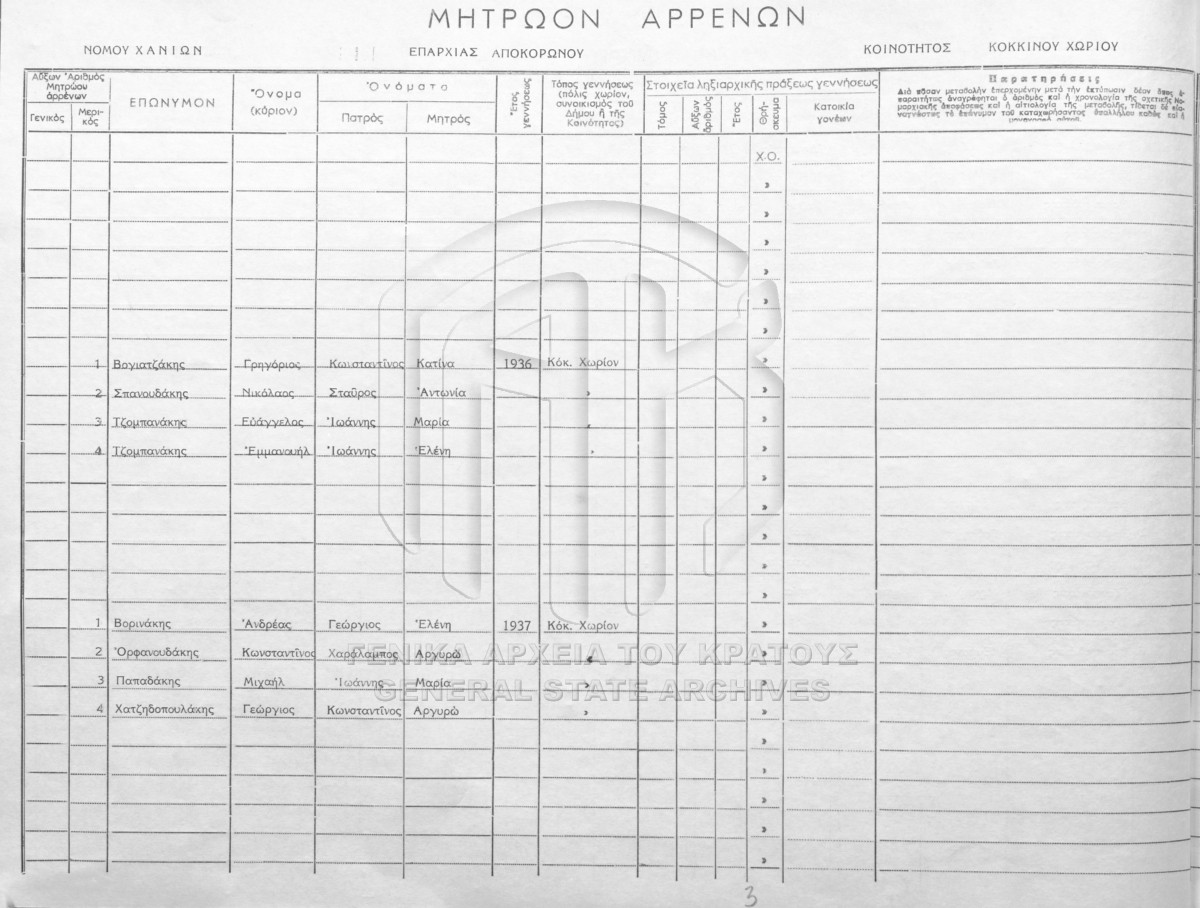 ΜΗΤΡΩΟΝ ΑΡΡΕΝΩΝ
ΝΟΜΟΥ ΧΑΝΙΩΝ ΕΠΑΡΧΙΑΣ ΑΠΟΚΟΡΩΝΟΥ ΚΟΙΝΟΤΗΤΟΣ ΚΟΚΚΙΝΟΥ ΧΩΡΙΟΥ
Αὔξων Ἀριθμὸς Μητρώου ἀρρένων
Γενικός Μερικός
ΕΠΩΝΥΜΟΝ
Ὄνομα (κύριον)
Ὀνόματα
Πατρός Μητρός
Ἔτος γεννήσεως
Τόπος γεννήσεως (πόλις χωρίον, συνοικισμὸς τοῦ Δήμου ἢ τῆς Κοινότητος)
Στοιχεῖα ληξιαρχικῆς πράξεως γεννήσεως
Τόμος Αὔξων ἀριθμὸς Ἔτος Θρήσκευμα
Κατοικία γονέων
Παρατηρήσεις
Διὰ πᾶσαν μεταβολὴν ἐπερχομένην μετὰ τὴν ἐκτύπωσιν δέον ὅπως ἀπαραιτήτως ἀναγράφηται ὁ ἀριθμὸς καὶ ἡ χρονολογία τῆς σχετικῆς Νομαρχιακῆς ἀποφάσεως καὶ ἡ αἰτιολογία τῆς μεταβολῆς, τὸ ἐπώνυμον τοῦ καταχωρήσαντος ὑπαλλήλου καθὼς καὶ ἡ
Χ.Ο.
»
»
»
»
»
»
1 Βογιατζάκης Γρηγόριος Κωνσταντῖνος Κατίνα 1936 Κόκ. Χωρίον »
2 Σπανουδάκης Νικόλαος Σταῦρος Ἀντωνία » »
3 Τζομπανάκης Εὐάγγελος Ἰωάννης Μαρία » »
4 Τζομπανάκης Ἐμμανουήλ Ἰωάννης Ἑλένη » »
»
»
»
»
»
1 Βορινάκης Ἀνδρέας Γεώργιος Ἑλένη 1937 Κόκ. Χωρίον »
2 Ὀρφανουδάκης Κωνσταντῖνος Χαράλαμπος Αργυρὼ » »
3 Παπαδάκης Μιχαήλ Ἰωάννης Μαρία » »
4 Χατζηδοπουλάκης Γεώργιος Κωνσταντῖνος Αργυρὼ » »
»
»
»
»
»
ΓΕΝΙΚΑ ΑΡΧΕΙΑ ΤΟΥ ΚΡΑΤΟΥΣ
GENERAL STATE ARCHIVES
3